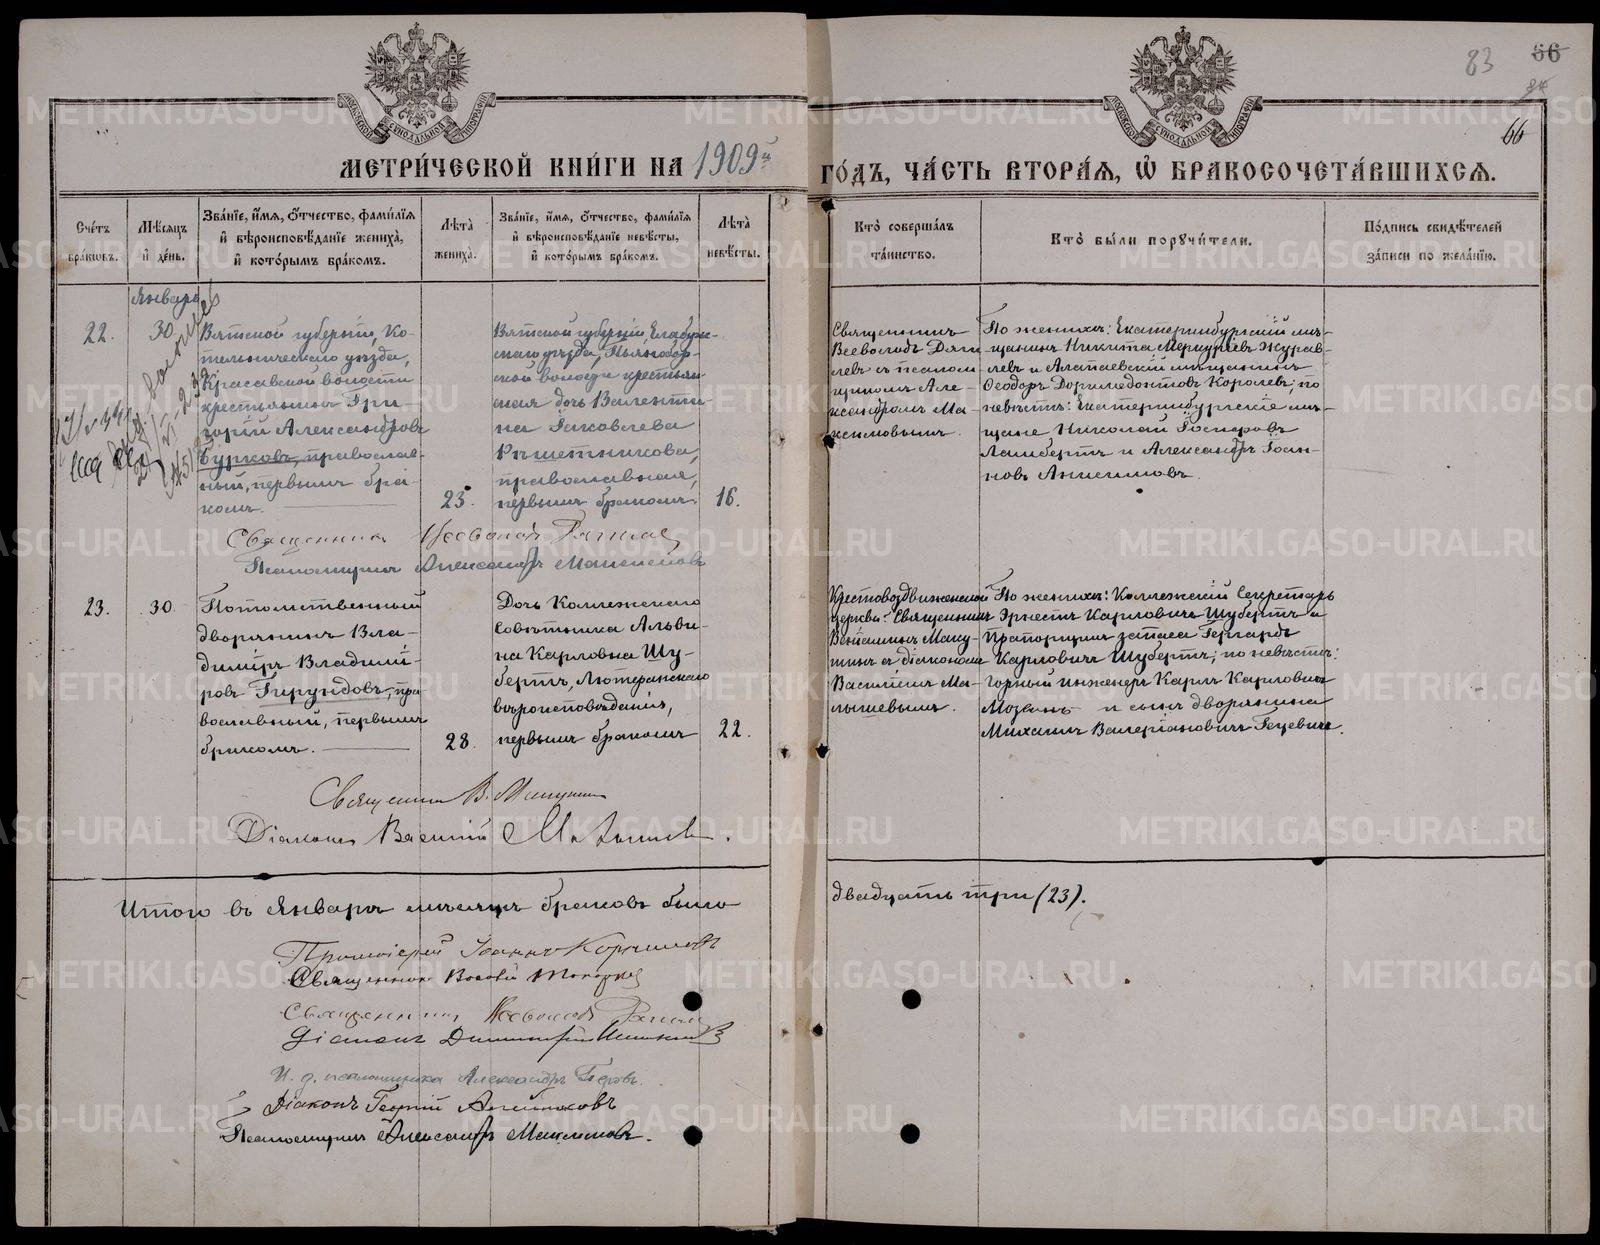 83 66
66
МЕТРИ́ЧЕСКОЙ КНИ́ГИ НА 1909й ГО́ДЪ, ЧА́СТЬ ВТОРА́Я, Ѡ҆ БРАКОСОЧЕТА́ВШИХСЯ.
Сче́тъ бра́ковъ.
Мѣ́сяцъ и҆ де́нь.
Зва́нїе, и҆́мя, ѻ҆́тчество, фами́лїя и҆ вѣроисповѣ́данїе жениха̀, и҆ кото́рымъ бра́комъ.
Лѣта̀ жениха̀.
Зва́нїе, и҆́мя, ѻ҆́тчество, фами́лїя и҆ вѣроисповѣ́данїе невѣ́сты, и҆ кото́рымъ бра́комъ.
Лѣта̀ невѣ́сты.
Кто̀ соверша́лъ та́инство.
Кто̀ бы́ли порꙋчи́тели.
По́дпись свидѣ́телей за́писи по жела́нїю.
Январь
22. 30.
Вятской губерніи, Ко-
тельническаго уѣзда,
Красавской волости
крестьянинъ Гри-
горій Александровъ
Бурковъ, православ-
ный, первымъ бра-
комъ.
25.
Вятской губерніи, Елабуж-
скаго уѣзда, Пьяноборской
волости крестьян-
ская дочь Валенти-
на Іаковлева
Рѣшетникова,
православная,
первымъ бракомъ.
16.
Священникъ
Всеволодъ Дяги-
левъ съ псалом-
щикомъ Але-
ксандромъ Ма-
ксимовымъ.
По женихѣ: Екатеринбургскій мѣ-
щанинъ Никита Меркурьевъ Журав-
левъ и Алапаевскій мѣщанинъ
Ѳеодоръ Доримедонтовъ Королевъ; по
невѣстѣ: Екатеринбургскіе мѣ-
щане, Николай Іосифовъ
Ламбертъ и Александръ Іоан-
новъ Анисимовъ.
Священникъ Всеволодъ Дягилевъ
Псаломщикъ Александръ Максимовъ
23. 30.
Потомственный
дворянинъ Вла-
димиръ Владими-
ровъ Гирундовъ, пра-
вославный, первымъ
бракомъ.
28.
Дочь Коллежскаго
Совѣтника Альви-
на Карловна Шу-
бертъ, Лютеранскаго
вѣроисповѣданія,
первымъ бракомъ
22.
Крестовоздвиженской
церкви: Священникъ
Веніаминъ Маку-
шинъ съ діакономъ
Василіемъ Ма-
лышевымъ.
По женихѣ: Коллежскій Секретарь
Эрнестъ Карловичъ Шубертъ и
Прапорщикъ запаса Гергардъ
Карловичъ Шубертъ; по невѣстѣ:
Горный инженеръ Карлъ Карловичъ
и сынъ дворянина
Михаилъ Валеріановичъ Гецевичъ.
Священникъ В. Макушинъ
Діаконъ Василій Малышевъ.
Итого въ Январѣ мѣсяцѣ браковъ было двадцать три (23).
Протоіерей Іоаннъ
Священникъ
Священникъ Всеволодъ Дягилевъ
Діаконъ Димитрій
И. д. псаломщика Александръ
Діаконъ Георгій
Псаломщикъ Александръ Максимовъ.
METRIKI.GASO-URAL.RU